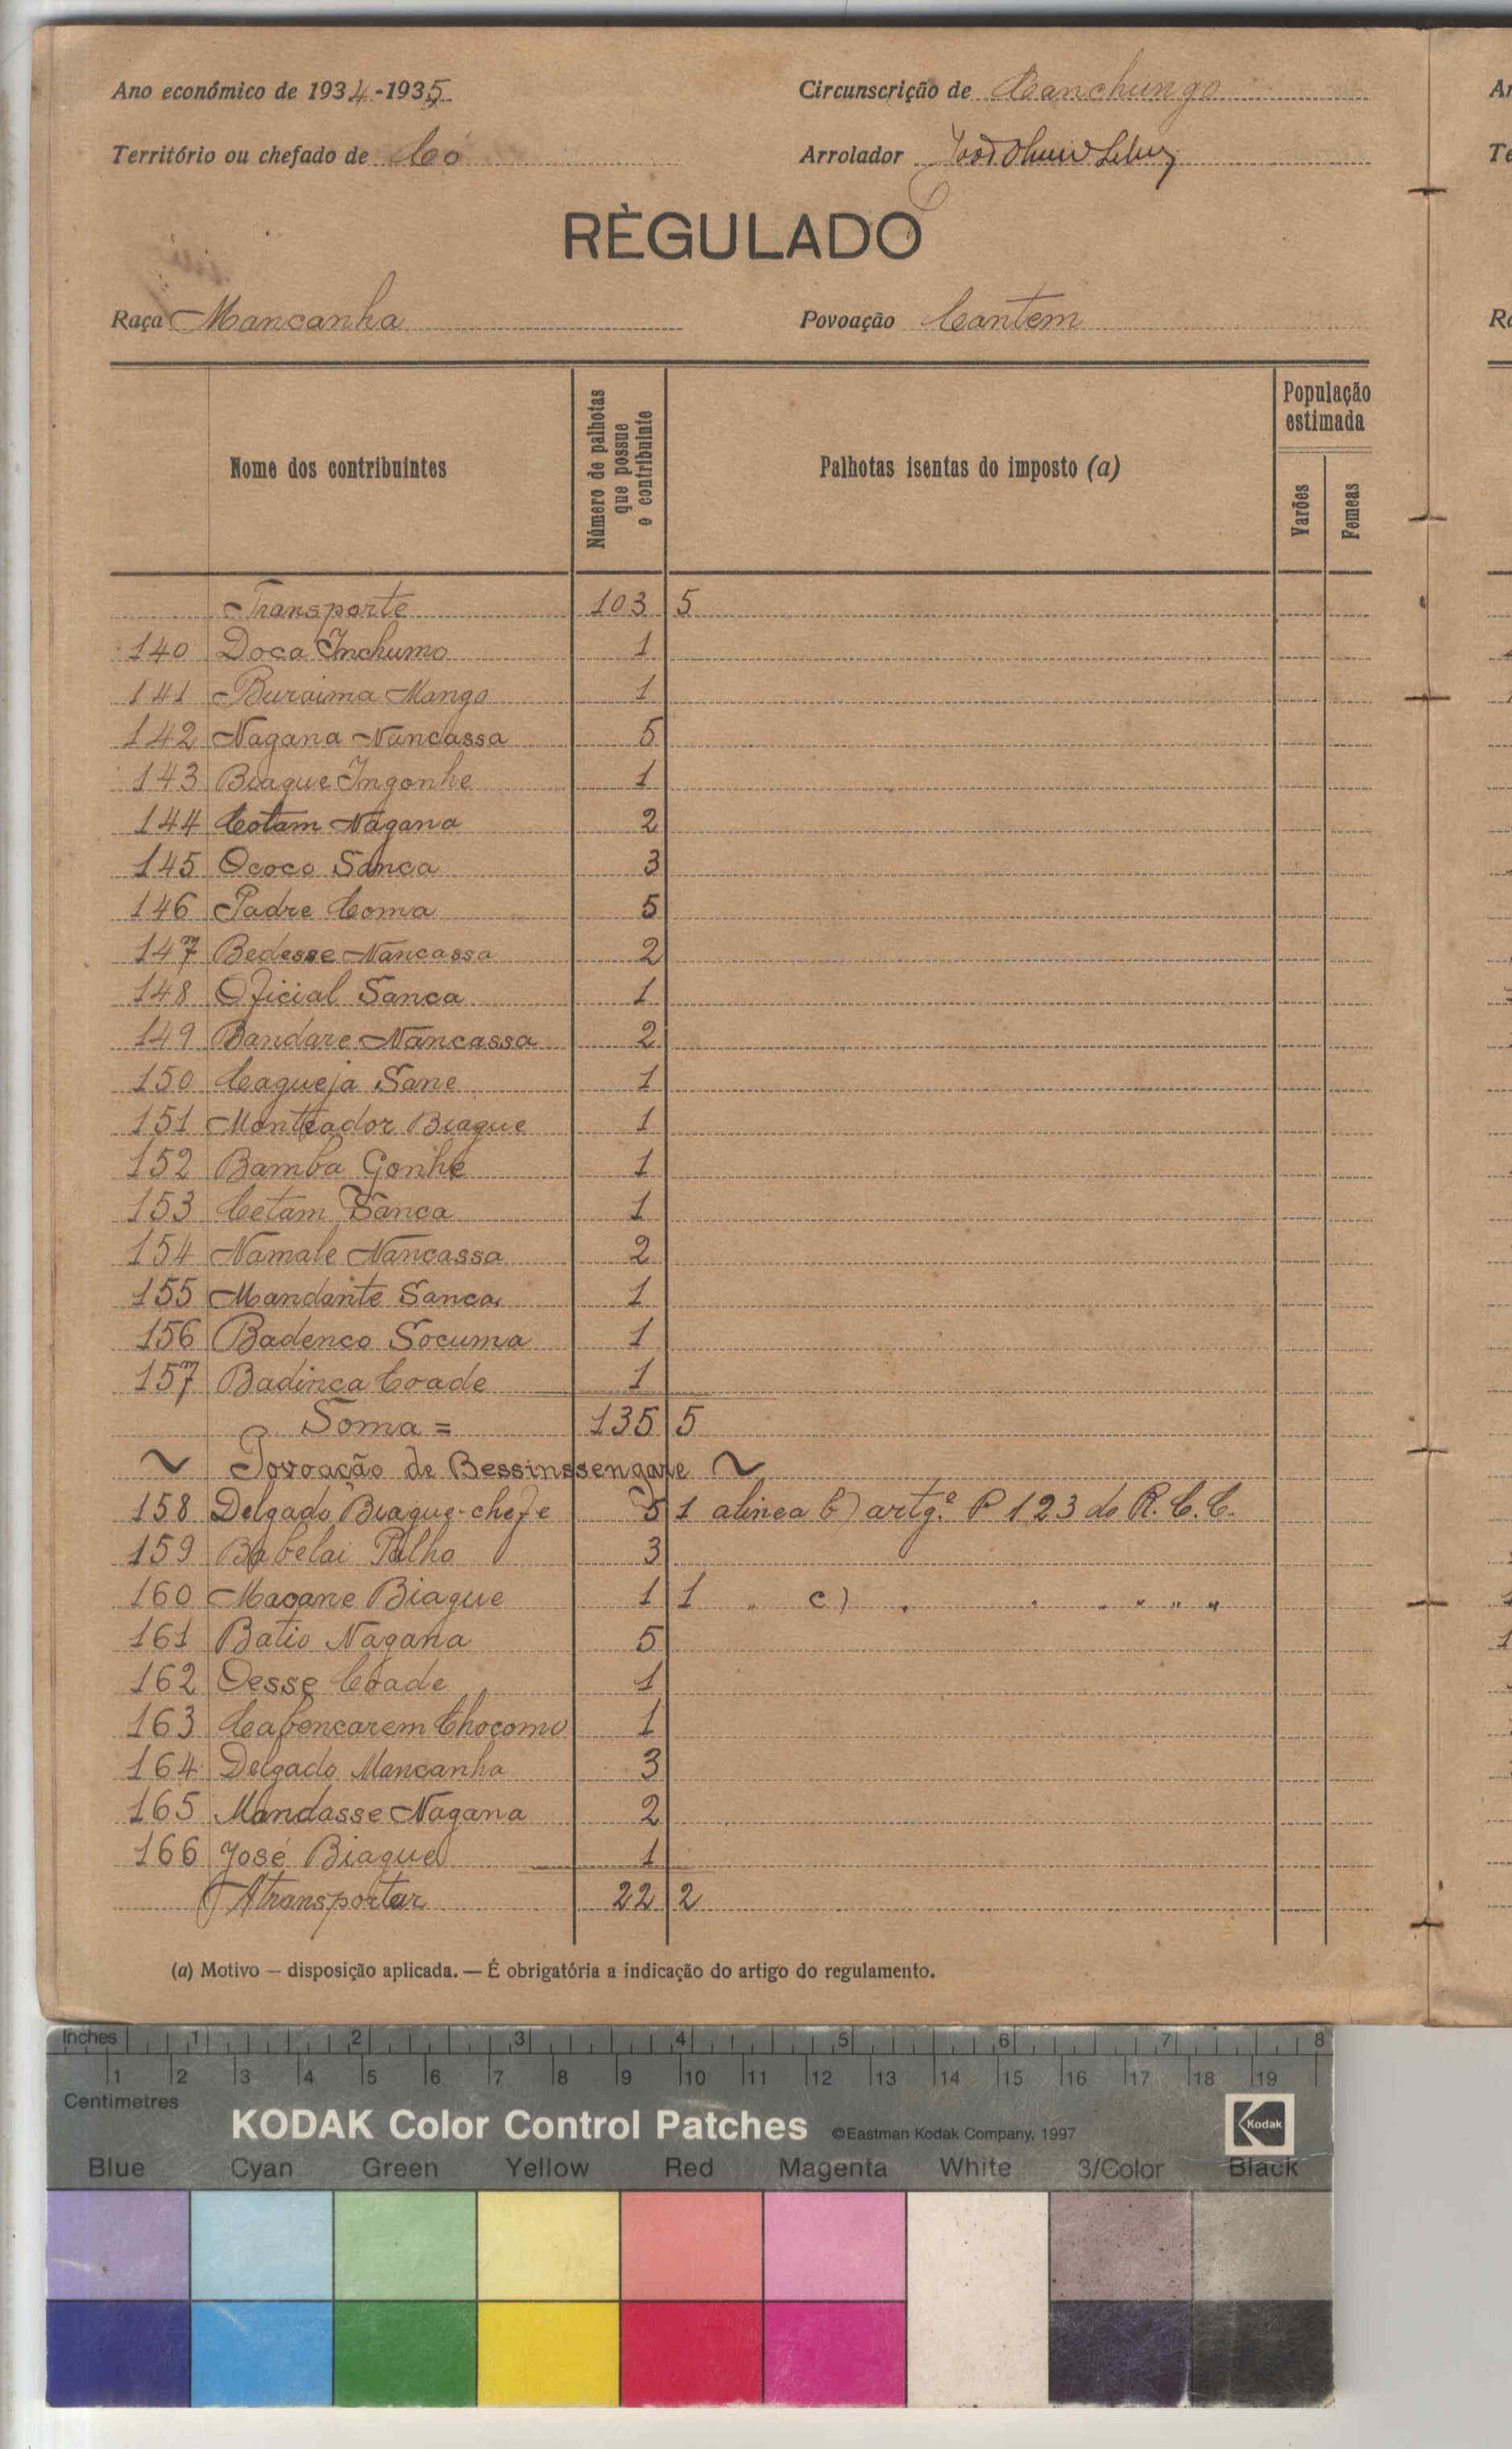 Ano económico de 1934-1935 Circunscrição de Canchungo
Território ou chefado de Có Arrolador
RÈGULADO
Raça Mancanha Povoação Cantem
Nome dos contribuintes
Número de palhotas que possue o contribuinte
Palhotas isentas do imposto (a)
População estimada
Varões
Femeas
Transporte 103 5
140 Doca Inchumo 1
141 Buraima Mango 1
142 Nagana Nancassa 5
143 Biague Ingonhe 1
144 Cotam Nagana 2
145 Ococo Sanca 3
146 Padre Coma 5
147 Bedesse Nancassa 2
148 Oficial Sanca 1
149 Bandare Nancassa 2
150 Cagueja Sane 1
151 Monteador Biague 1
152 Bamba Gonhe 1
153 Cetam Sanca 1
154 Namale Nancassa 2
155 Mandante Sanca 1
156 Badenco Socuma 1
157 Badinca Coade 1
Soma = 135 5
~ Povoação de Bessinssengare ~
158 Delgado Biague-chefe 5 1 alinea b) artg.º P 123 do R. C. C.
159 Babelai Palha 3
160 Macane Biague 1 1 " c) " " " " " "
161 Batio Nagana 5
162 Oesse Coade 1
163 Cabencarem Chocomo 1
164 Delgado Mancanha 3
165 Mandasse Nagana 2
166 José Biague 1
A transportar 22 2
(a) Motivo — disposição aplicada. — É obrigatória a indicação do artigo do regulamento.
Inches 1 2 3 4 5 6 7 8
1 2 3 4 5 6 7 8 9 10 11 12 13 14 15 16 17 18 19
Centimetres
KODAK Color Control Patches ©Eastman Kodak Company, 1997 Kodak
Blue Cyan Green Yellow Red Magenta White 3/Color Black